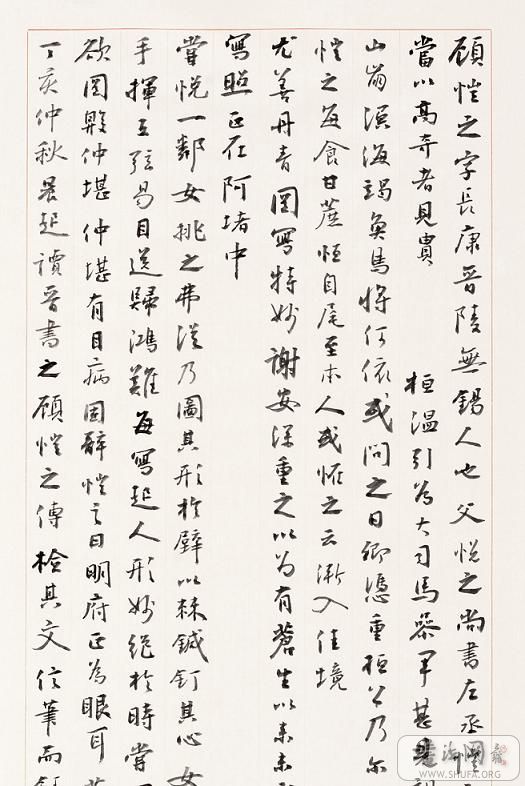 顧愷之字長康晉陵無錫人也父悅之尚書左丞愷
嘗以高奇者見貴 桓溫引為大司馬參軍甚見親
山崩溟海竭魚鳥將何依或問之曰卿憑重桓公乃爾
愷之每食甘蔗恒自尾至本人或怪之云漸入佳境
尤善丹青圖寫特妙謝安深重之以為有蒼生以來未
寫照正在阿堵中
嘗悅一鄰女挑之弗從乃圖其形於壁以棘鍼釘其心女
手揮五弦易目送歸鴻難每寫起人形妙絕於時嘗
欲圖殷仲堪仲堪有目病固辭愷之曰明府正為眼耳
丁亥仲秋晨起讀晉書之顧愷之傳檢其文信筆而
書法圖
WWW.SHUFA.ORG